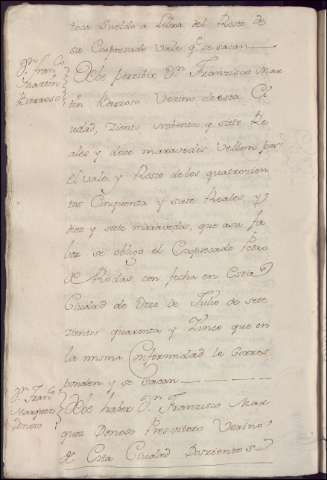 toca sueldo a Libra del Resto de
su Expresado Vale q.e se sacan
D.n Fran.co
Martin
Reinoso
Debe percibir D.n Francisco Mar
tin Reinoso Vezino de esta Ci
udad, Ziento ochenta y siete Re
ales y doze maravedis Vellon por
el vale y Resto de los quatrozien
tos Cinquenta y siete Reales, y
diez y siete maravedis, que a su fa
bor se obligo el Expresado Pedro
de Rodas con fecha en Esta
Ciudad de Diez de Julio de sete
zientos quarenta y Zinco que en
la misma Conformidad le Corres
ponden y se Sacan
D.n Fran.co
Marquez
Donoso
Debe haber D.n Francisco Mar
quez Donoso Presvitero Vezino
de Esta Ciudad Duzientos